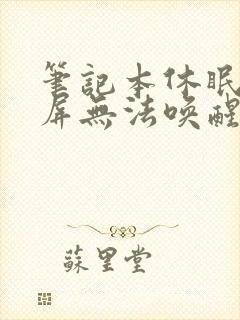 筆記本休眠
屏無法喚醒
蘇里堂